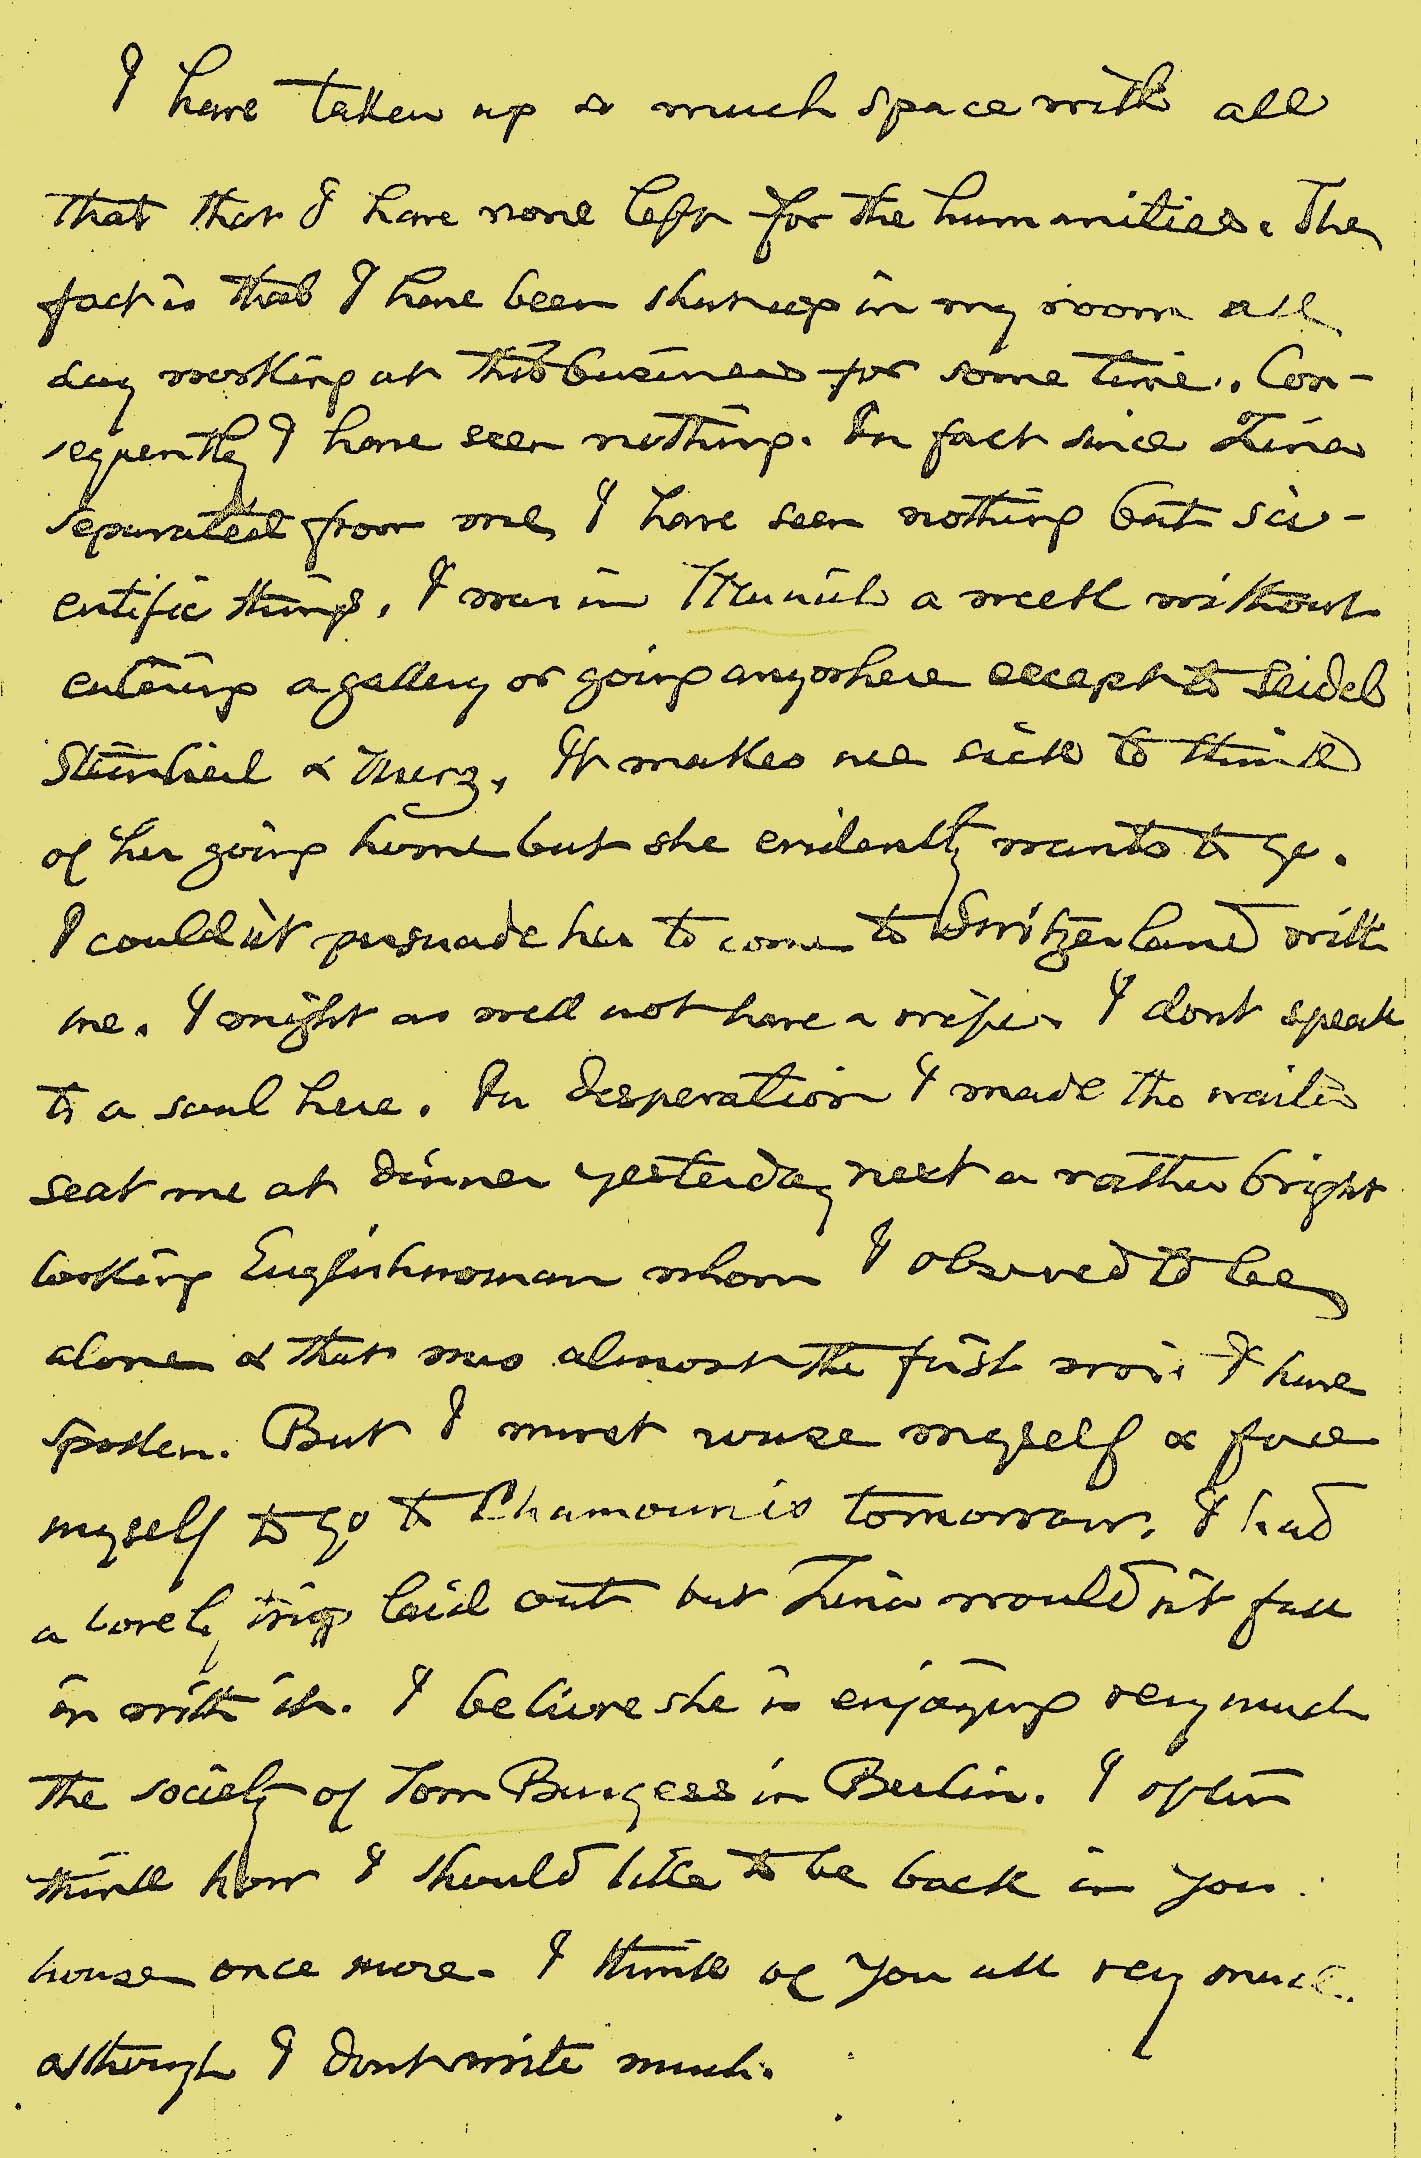 I have taken up so much space with all
that that I have none left for the humanities. The
fact is that I have been shut up in my room all
day working at this business for some time. Con-
sequently I have seen nothing. In fact since Zina
separated from me I have seen nothing but sci-
entific things. I was in Munich a week without
entering a gallery or going anywhere except to Seidel
Steinheil & Merz. It makes me sick to think
of her going home but she evidently wants to go.
I couldn't persuade her to come to Switzerland with
me. I might as well not have a wife. I dont speak
to a soul here. In desperation I made the waiter
seat me at dinner yesterday next a rather bright
looking Englishwoman whom I observed to be
alone & that was almost the first word I have
spoken. But I must rouse myself & force
myself to go to Chamounis tomorrow. I had
a lovely trip laid out but Zina would n't fall
in with it. I believe she is enjoying very much
the society of Tom Burgess in Berlin. I often
think how I should like to be back in your
house once more. I think of you all very much
although I dont write much.